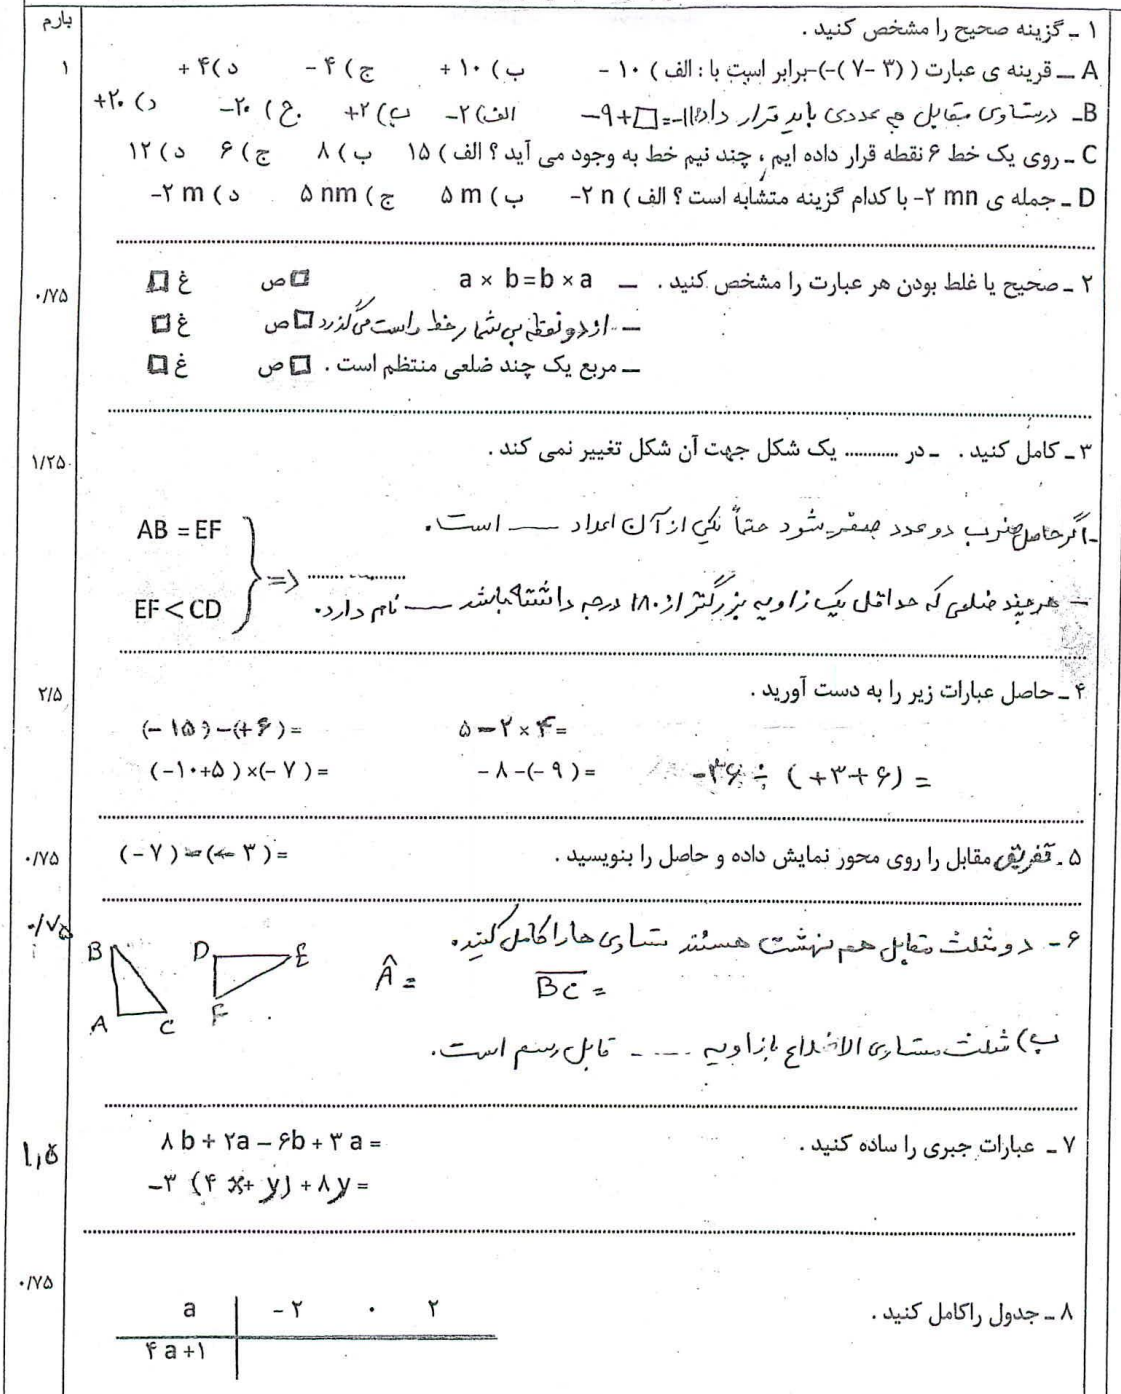 بارم
۱ ـ گزینه صحیح را مشخص کنید .
۱
A ــ قرینه ی عبارت ( (۳ -۷ )-)-برابر است با : الف ) ۱۰ - ب ) ۱۰ + ج ) ۴ - د )۴ +
B- در تساوی مقابل چه عددی باید قرار داد؟ ۱۱-=□+۹- الف) ۲- ب) ۲+ ج ) ۲۰- د) ۲۰+
C ـ روی یک خط ۶ نقطه قرار داده ایم ، چند نیم خط به وجود می آید ؟ الف ) ۱۵ ب ) ۸ ج ) ۶ د ) ۱۲
D ـ جمله ی -۲ mn با کدام گزینه متشابه است ؟ الف ) -۲ n ب ) ۵ m ج ) ۵ nm د ) -۲ m
۰/۷۵
۲ ـ صحیح یا غلط بودن هر عبارت را مشخص کنید . ــ a × b=b × a ص□ غ□
ــ از دو نقطه بی شمار خط راست می گذرد □ص غ□
ــ مربع یک چند ضلعی منتظم است . □ ص غ□
۱/۲۵
۳ ـ کامل کنید . ـ در ............ یک شکل جهت آن شکل تغییر نمی کند .
-اگر حاصل ضرب دو عدد صفر شود حتماً یکی از آن اعداد ــــ است.
AB = EF
EF < CD } => ..................
– هر چند ضلعی که حداقل یک زاویه بزرگتر از ۱۸۰ درجه داشته باشد ــــ نام دارد.
۲/۵
۴ ـ حاصل عبارات زیر را به دست آورید .
(- ۱۵ ) -(+ ۶ ) = ۵ – ۲ × ۴ =
(-۱۰+۵ ) ×(- ۷ ) = - ۸ -(- ۹ ) = -۳۶ ÷ (+۳+۶) =
۰/۷۵
۵ ـ تفریق مقابل را روی محور نمایش داده و حاصل را بنویسید . (- ۷ ) – (- ۳ ) =
۰/۷۵
۶ - دو مثلث مقابل هم نهشت هستند تساوی ها را کامل کنید.
B A C D E F Â = BC =
پ) مثلث متساوی الاضلاع با زاویه ---- قابل رسم است.
۱,۵
۷ ـ عبارات جبری را ساده کنید .
۸ b + ۲a – ۶b + ۳ a =
-۳ (۴ x + y) + ۸y =
۰/۷۵
۸ ـ جدول راکامل کنید .
a | - ۲ ۰ ۲
۴ a +۱ |